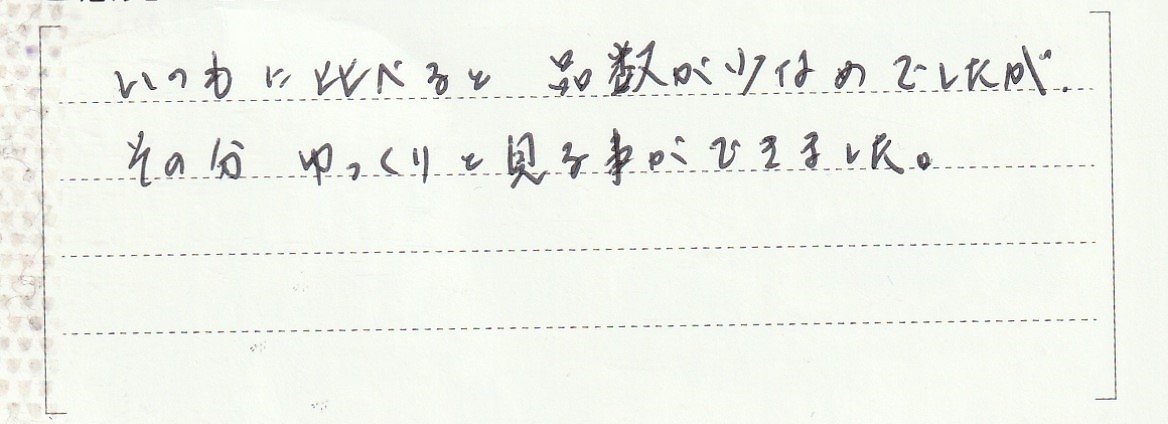 いつもに比べると 品数が少なめでしたが、
その分 ゆっくりと見る事ができました。